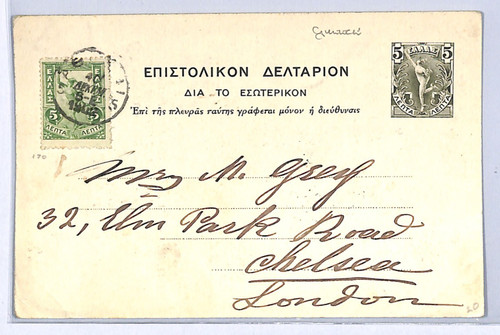 5 ΕΛΛΑΣ 5
ΛΕΠΤΑ ΛΕΠΤΑ
ΕΛΛΑΣ
5
ΛΕΠΤΑ ΛΕΠΤΑ
ΕΠΙΣΤΟΛΙΚΟΝ ΔΕΛΤΑΡΙΟΝ
ΔΙΑ ΤΟ ΕΣΩΤΕΡΙΚΟΝ
Ἐπὶ τῆς πλευρᾶς ταύτης γράφεται μόνον ἡ διεύθυνσις
170
Mrs M. Grey
32, Elm Park Road
Chelsea
London
20